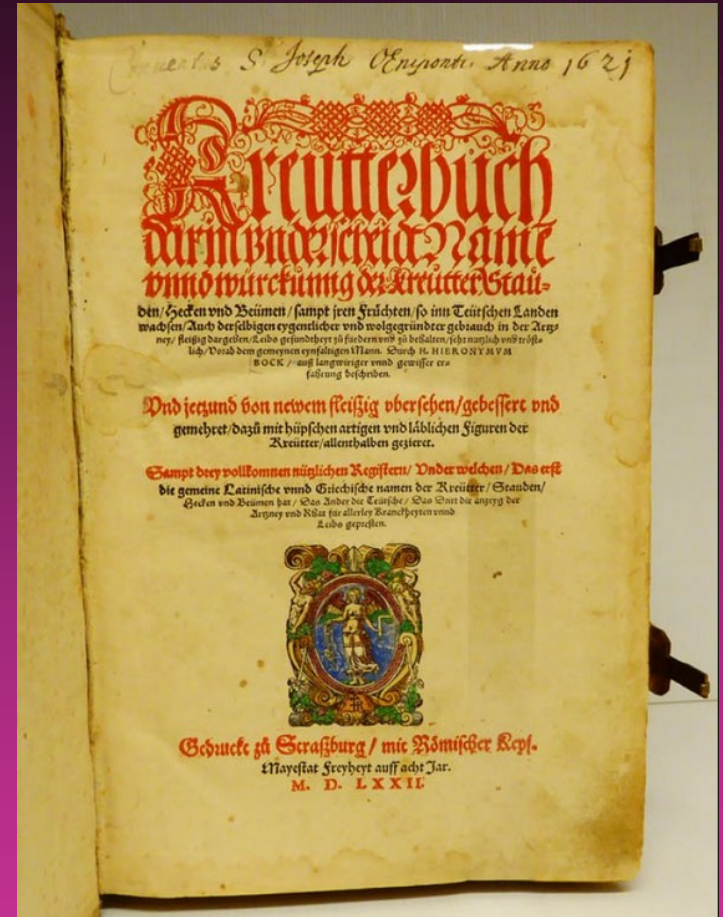 Conventus S. Joseph Œniponti. Anno 1621
Kreütterbuch
darin vnderscheidt Name
vnnd würckung der Kreütter Stau-
den/Hecken vnd Beümen/sampt jren Früchten/so inn Teütschen Landen
wachsen/Auch derselbigen eygentlicher vnd wolgegründter gebrauch in der Artz-
ney/fleißig dargeben/Leibs gesundtheyt zů fürdern vnd zů behalten/seht nutzlich vnd tröst-
lich/Vorab dem gemeynen eynfaltigen Mann. Durch H. HIERONYMVM
BOCK/auß langwiriger vnnd gewisser er-
fahrung beschriben.
Vnd jetzund von newem fleißig vbersehen/gebessert vnd
gemehret/dazů mit hüpschen artigen vnd läblichen Figuren der
Kreütter/allenthalben gezieret.
Sampt drey vollkomnen nützlichen Registern/Vnder welchen/Das erst
die gemeine Latinische vnnd Griechische namen der Kreütter/Stauden/
Hecken vnd Beümen hat/Das Ander die Teütsche/Das Drit die anzeyg der
Artzney vnd Rhat für allerley Kranckheyten vnnd
Leibs gepresten.
Gedruckt zů Straßburg/mit Römischer Keys.
Mayestat Freyheyt auff acht Jar.
M. D. LXXII.